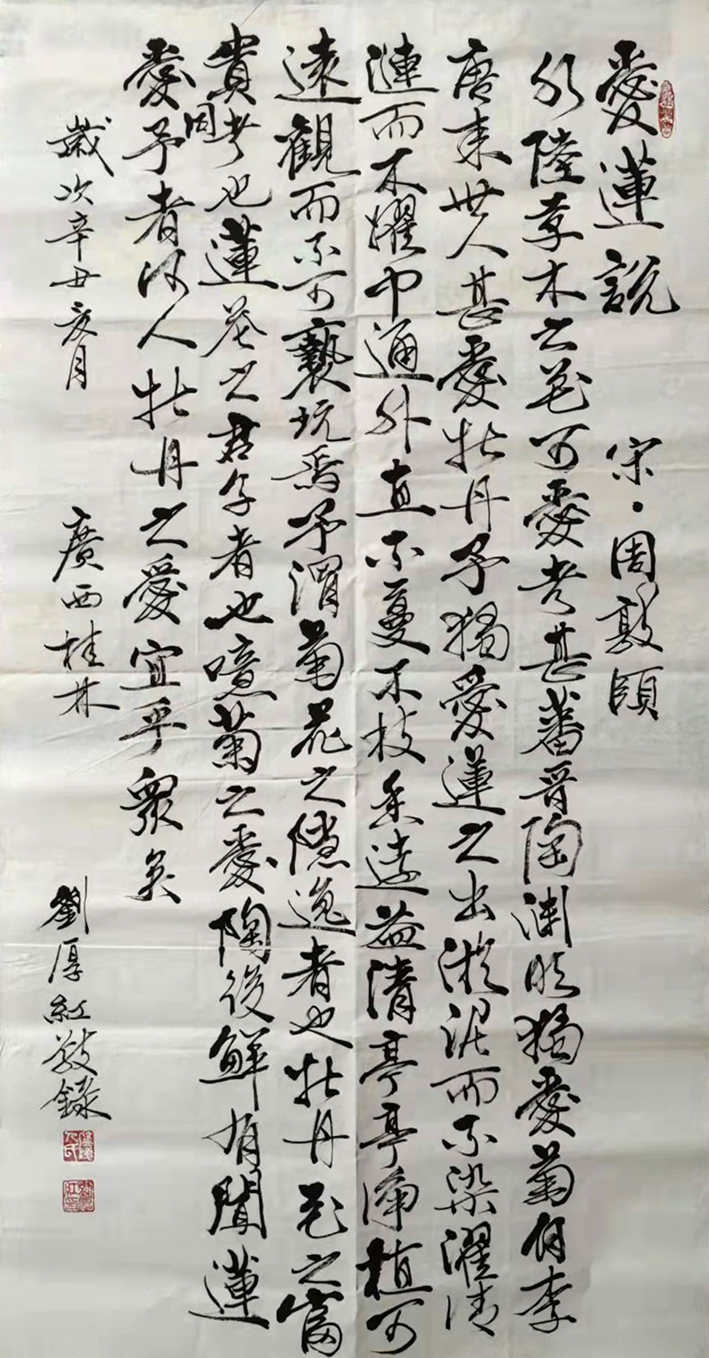 愛蓮說 宋·周敦頤
水陸草木之花可愛者甚蕃晉陶淵明獨愛菊自李
唐來世人甚愛牡丹予獨愛蓮之出淤泥而不染濯清
漣而不耀中通外直不蔓不枝香遠益清亭亭淨植可
遠觀而不可褻玩焉予謂菊花之隱逸者也牡丹花之富
貴者也蓮花之君子者也噫菊之愛陶後鮮有聞蓮
愛同予者何人牡丹之愛宜乎眾矣
歲次辛丑亥月 廣西桂林 劉厚紅敬錄